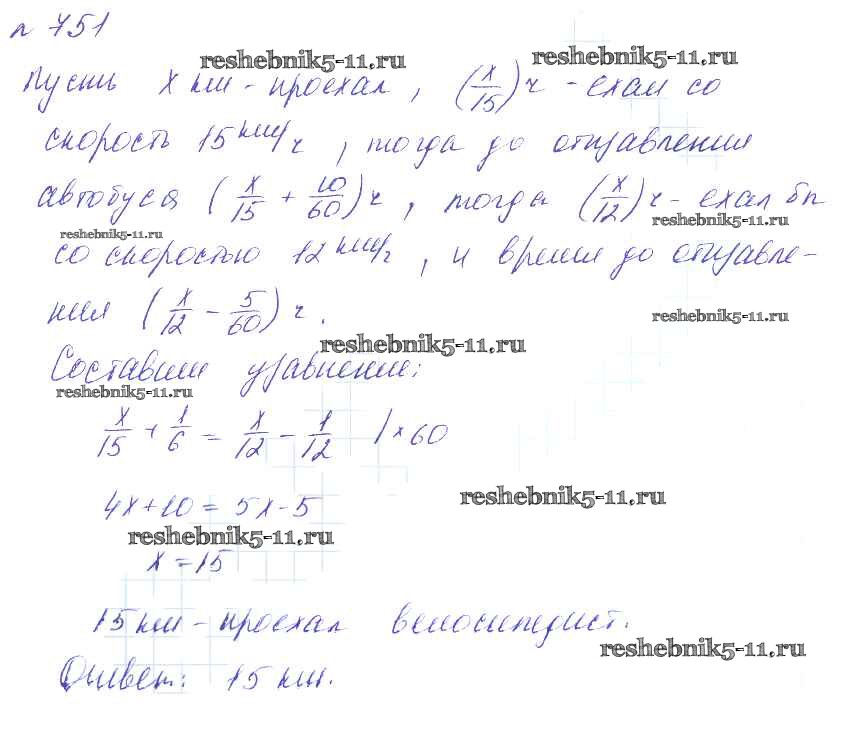 № 751
reshebnik5-11.ru
reshebnik5-11.ru
Пусть x км - проехал, (x/15) ч - ехал со
скорость 15 км/ч, тогда до отправления
автобуса (x/15 + 10/60) ч, тогда (x/12) ч - ехал бы
reshebnik5-11.ru
reshebnik5-11.ru
со скоростью 12 км/ч, и время до отправле-
ния (x/12 - 5/60) ч.
reshebnik5-11.ru
reshebnik5-11.ru
Составим уравнение:
reshebnik5-11.ru
x/15 + 1/6 = x/12 - 1/12 | × 60
4x + 10 = 5x - 5
reshebnik5-11.ru
reshebnik5-11.ru
x = 15
15 км - проехал велосипедист.
reshebnik5-11.ru
Ответ: 15 км.